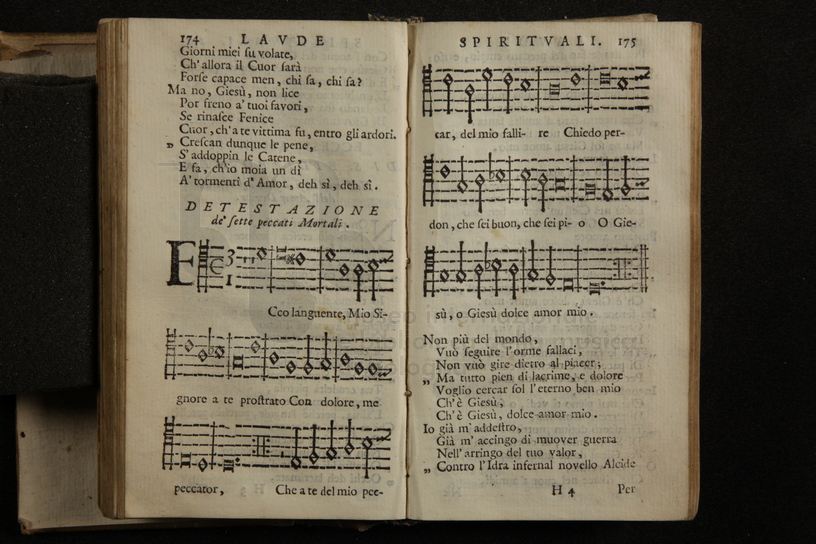 174 LAVDE
Giorni miei ſu volate,
Ch' allora il Cuor ſarà
Forſe capace men, chi ſa, chi ſa?
Ma no, Giesù, non lice
Por freno a' tuoi favori,
Se rinaſce Fenice
Cuor, ch' a te vittima fu, entro gli ardori.
„ Creſcan dunque le pene,
S' addoppin le Catene,
E fa, ch' io moia un dì
A' tormenti d' Amor, deh sì, deh sì.
DETESTAZIONE
de' ſette peccati Mortali.
ECco languente, Mio Si-
gnore a te proſtrato Con dolore, me
peccator, Che a te del mio pec-
SPIRITVALI. 175
car, del mio falli- re Chiedo per-
don, che ſei buon, che ſei pi- o O Gie-
sù, o Giesù dolce amor mio.
Non più del mondo,
Vuò ſeguire l' orme fallaci,
Non vuò gire dietro al piacer;
„ Ma tutto pien di lacrime, e dolore
Voglio cercar ſol l' eterno ben mio
Ch' è Giesù,
Ch' è Giesù, dolce amor mio.
Io già m' addeſtro,
Già m' accingo di muover guerra
Nell' arringo del tuo valor,
„ Contro l' Idra infernal novello Alcide
H 4 Per